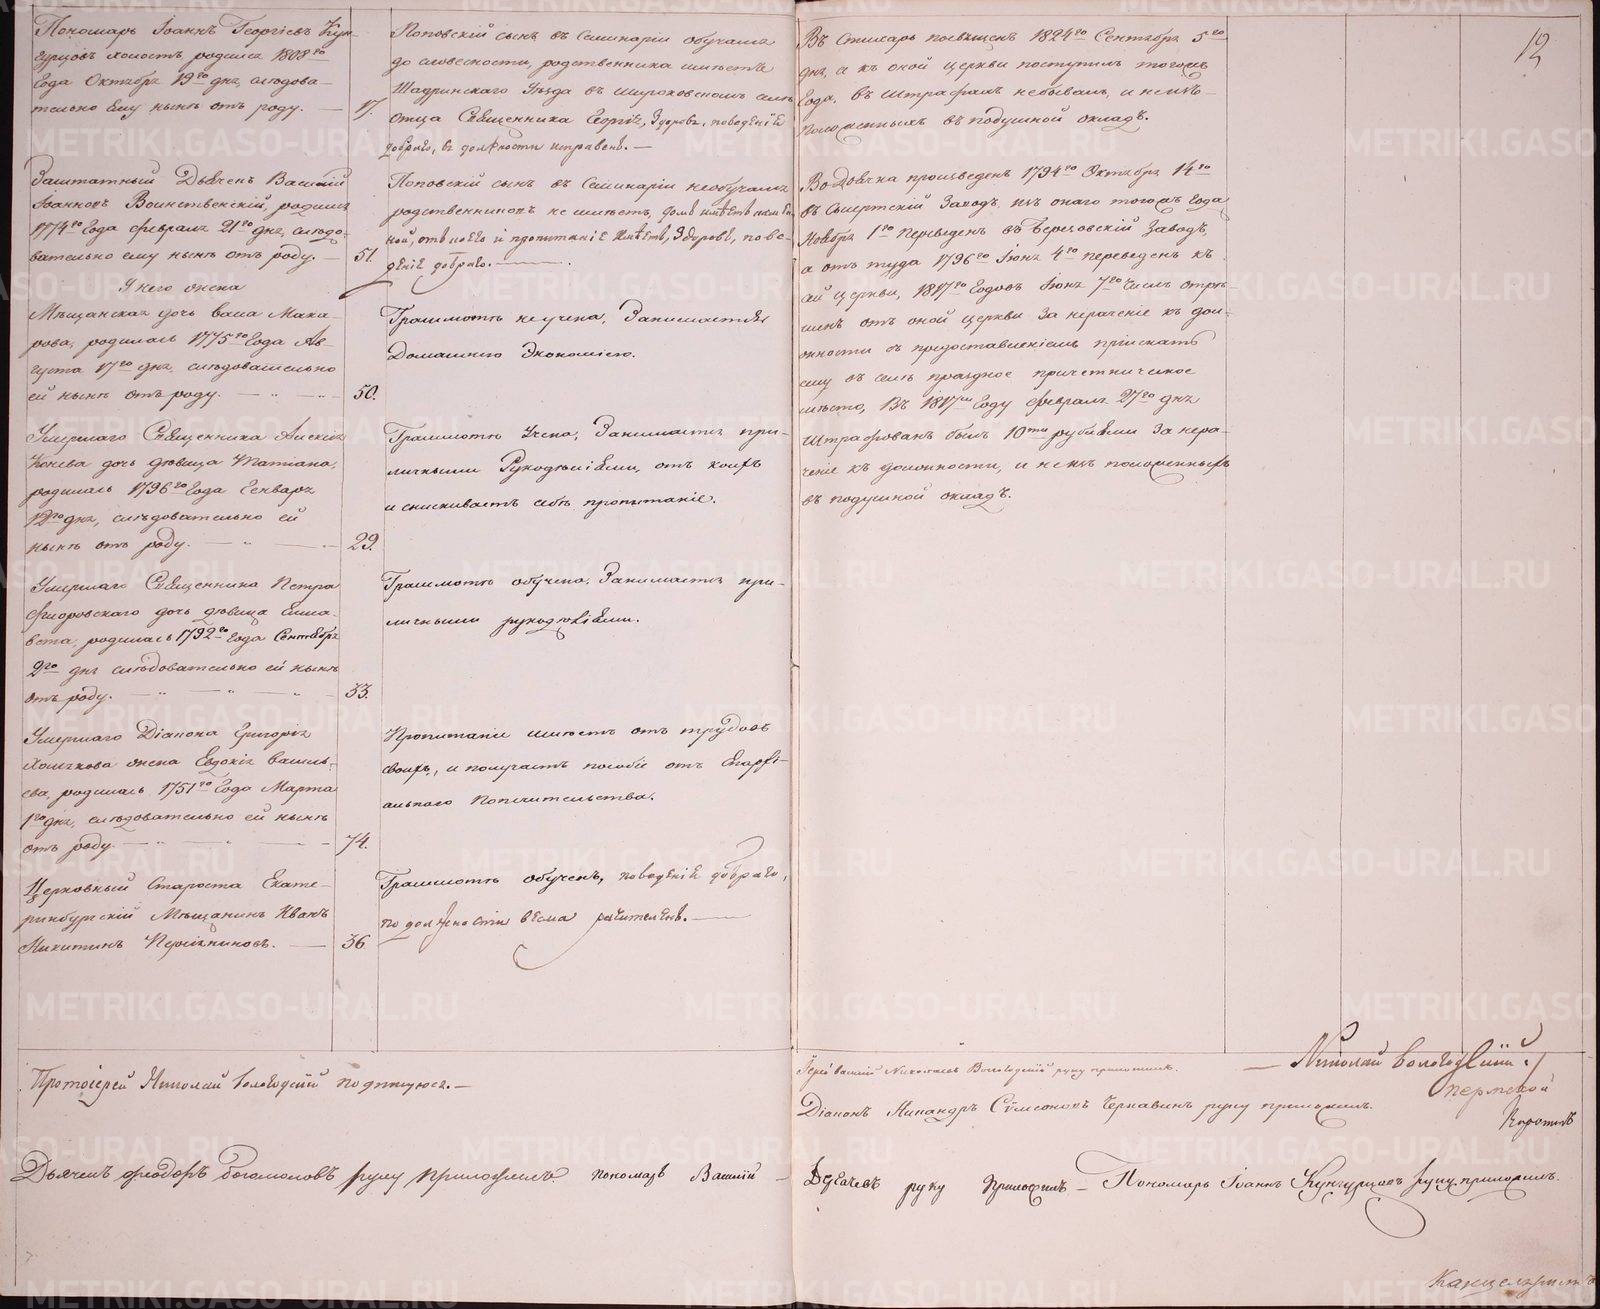 Пономарь Іоаннъ Георгіевъ Кун-
гурцовъ холостъ родился 1808го
Года Октября 19го дня, слѣдова-
тельно ему нынѣ отъ роду. — 17.
Поповскій сынъ въ Семинаріи обучался
до словесности, родственника имѣетъ
Шадринскаго Уѣзда въ Широковскомъ селѣ
отца Священника Георгія, Здоровъ, поведѣнія
добраго, въ должности исправенъ. —
Въ Стихарь посвященъ 1824го Сентября 5го
дня, а къ оной церкви поступилъ тогожъ
Года. въ Штрафахъ небывалъ, и неизъ-
положенныхъ въ подушной окладъ.
12
Заштатный Дьячекъ Василій
Іоанновъ Воинственскій, родился
1774го Года февраля 21го дня, слѣдо-
вательно ему нынѣ отъ роду. — 51.
Поповскій сынъ въ Семинаріи необучался
родственниковъ не имѣетъ, домъ имѣетъ
ной, отъ коего и пропитаніе имѣетъ, Здоровъ, пове-
дѣнія добраго. —
Во Дьячка произведенъ 1794го Октября 14го
въ Сысертскій Заводъ, изъ онаго тогожъ Года
Ноября 1го переведенъ въ Березовскій Заводъ,
а отъ туда 1796го Іюня 4го переведенъ къ
ей церкви, 1817го Годовъ Іюня 7го числа отрѣ-
шенъ отъ оной церкви за нераченіе къ дол-
жности съ предоставленіемъ пріискать
ему въ селѣ праздное причетническое
мѣсто, Въ 1817мъ Году февраля 27го дня
Штрафованъ былъ 10ти рублями за нера-
ченіе къ должности, и неизъ положенныхъ
въ подушной окладъ.
У него жена
Мѣщанская дочь Васа Мака-
рова, родилась 1775го Года Ав-
густа 17го дня, слѣдовательно
ей нынѣ отъ роду. — 50.
Грамматѣ неучена, Занимается
Домашнею Экономіею.
Умершаго Священника Алексія
Конева дочь дѣвица Татіана,
родилась 1796го Года Генваря
12го дня, слѣдовательно ей
нынѣ отъ роду. — 29.
Грамматѣ Учена, Занимается при-
личными Рукодѣліями, отъ коихъ
и снискиваетъ себѣ пропитаніе.
Умершаго Священника Петра
Флоровскаго дочь дѣвица Елиса-
вета, родилась 1792го Года Сентября
2го дня слѣдовательно ей нынѣ
отъ роду. — 33.
Грамматѣ обучена, Занимается при-
личными рукодѣліями.
Умершаго Діакона Григорія
Хомякова жена Евдокія Василь-
ева, родилась 1751го Года Марта
1го дня, слѣдовательно ей нынѣ
отъ роду. — 74.
Пропитаніе имѣетъ отъ трудовъ
своихъ, и получаетъ пособіе отъ Епархі-
альнаго Попечительства.
Церковный Староста Екате-
ринбургскій Мѣщанинъ Иванъ
Никитинъ — 36
Грамматѣ обученъ, поведѣнія добраго,
по должности весма рачителенъ. —
Протоіерей Николай Вологодскій подпишуюсь. —
Іерей Василій Николаевъ Вологодскій руку приложилъ.
— Николай Вологодскій.
Пермской
Діаконъ Никандръ Сѵмеоновъ Чернавинъ руку приложилъ.
Дьячекъ Феодоръ Богомоловъ руку приложилъ пономарь Василій —
Дергачевъ руку приложилъ — Пономарь Іоаннъ Кунгурцовъ руку приложилъ.
Канцеляристъ
METRIKI.GASO-URAL.RU